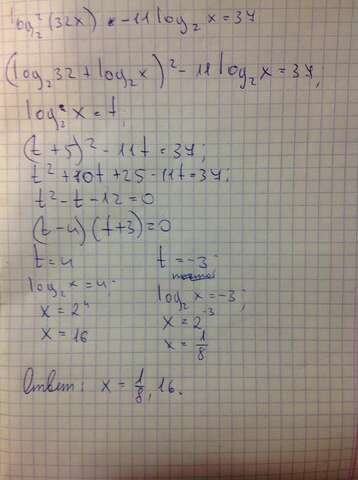 log₂²(32x) - 11 log₂ x = 37
(log₂ 32 + log₂ x)² - 11 log₂ x = 37;
log₂ x = t,
(t + 5)² - 11t = 37;
t² + 10t + 25 - 11t = 37;
t² - t - 12 = 0
(t - 4)(t + 3) = 0
t = 4 t = -3
log₂ x = 4; log₂ x = -3;
x = 2⁴ x = 2⁻³
x = 16 x = 1/8
Ответ: x = 1/8, 16.